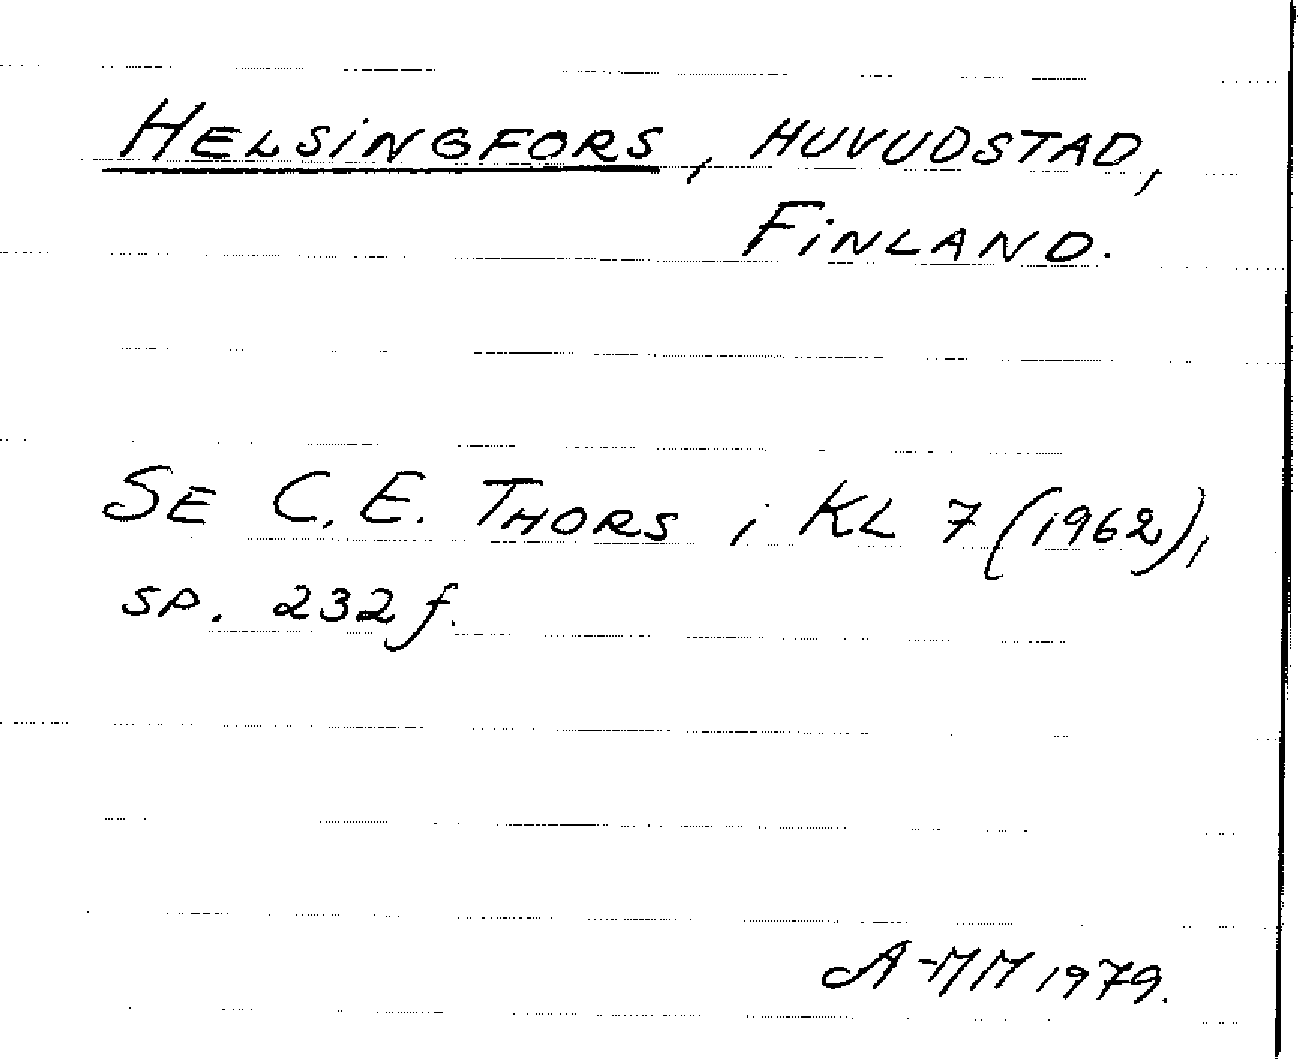 HELSINGFORS, HUVUDSTAD,
FINLAND.
SE C.E. THORS i KL 7 (1962),
SP. 232 f.
A-MM 1979.